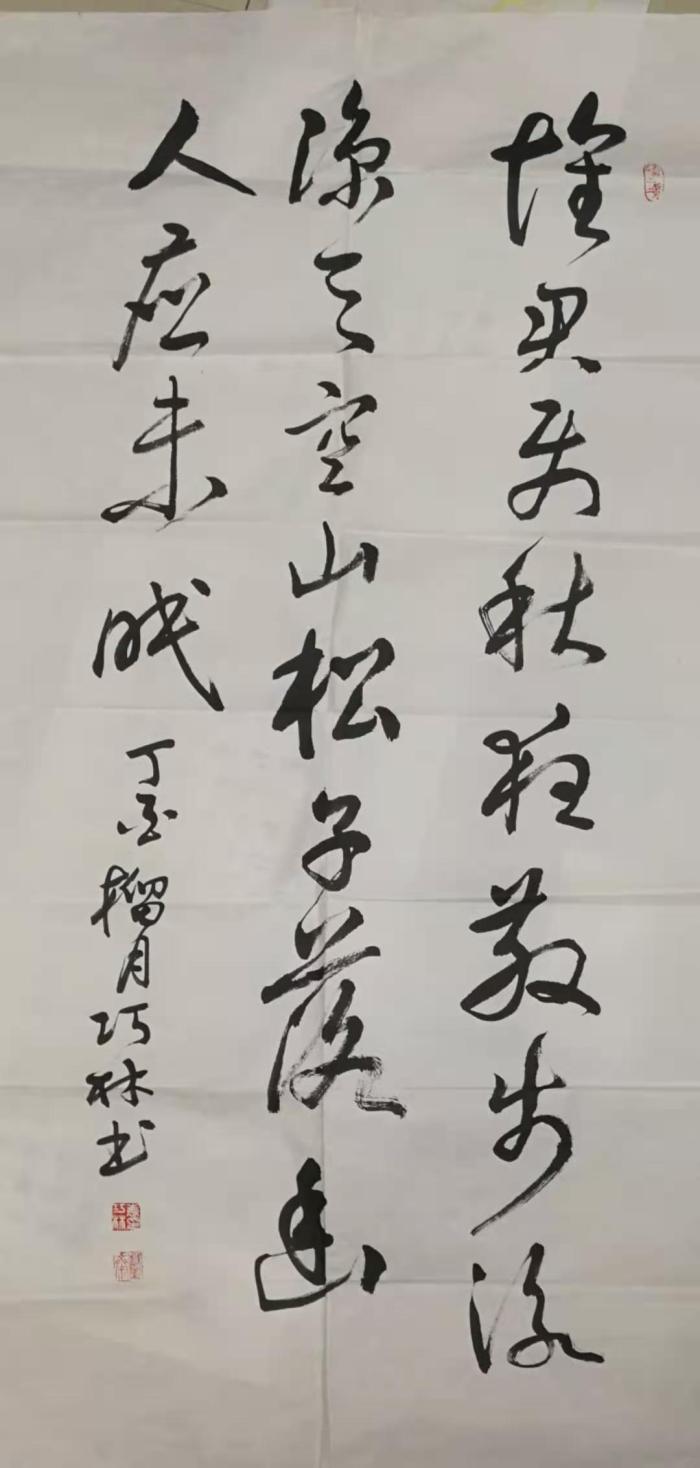 懷君属秋夜散步詠
涼天空山松子落幽
人應未眠
丁酉榴月巧林书